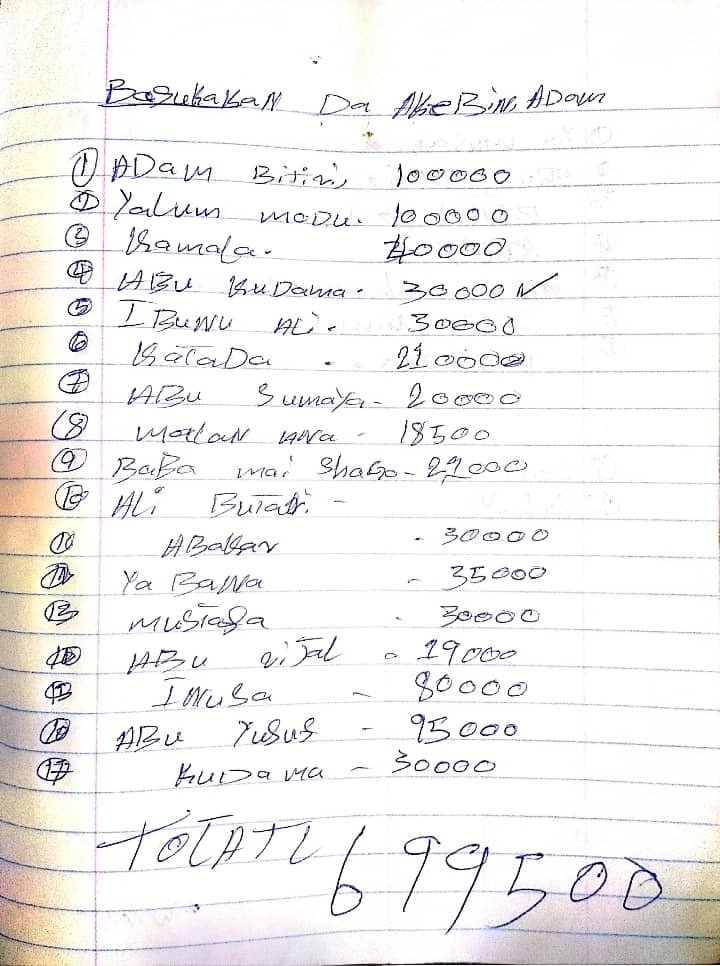 BasukakaN Da AkeBiN, ADam
① ADam Bitiri, 100000
② Yalum modu. 100000
③ Kamala. 40000
④ ABu KuDama. 30000
⑤ IBuNu ALi. 30000
⑥ KataDa . 210000
⑦ ABu Sumaya - 20000
⑧ - 18500
⑨ BaBa mai ShaGo - 22000
⑩ ALi -
ABakar - 30000
Ya BaWa - 35000
⑬ musTafa . 30000
ABu - 19000
INuSa - 80000
ABu Yusus - 95000
⑰ KuDama - 30000
TOTATL 699500